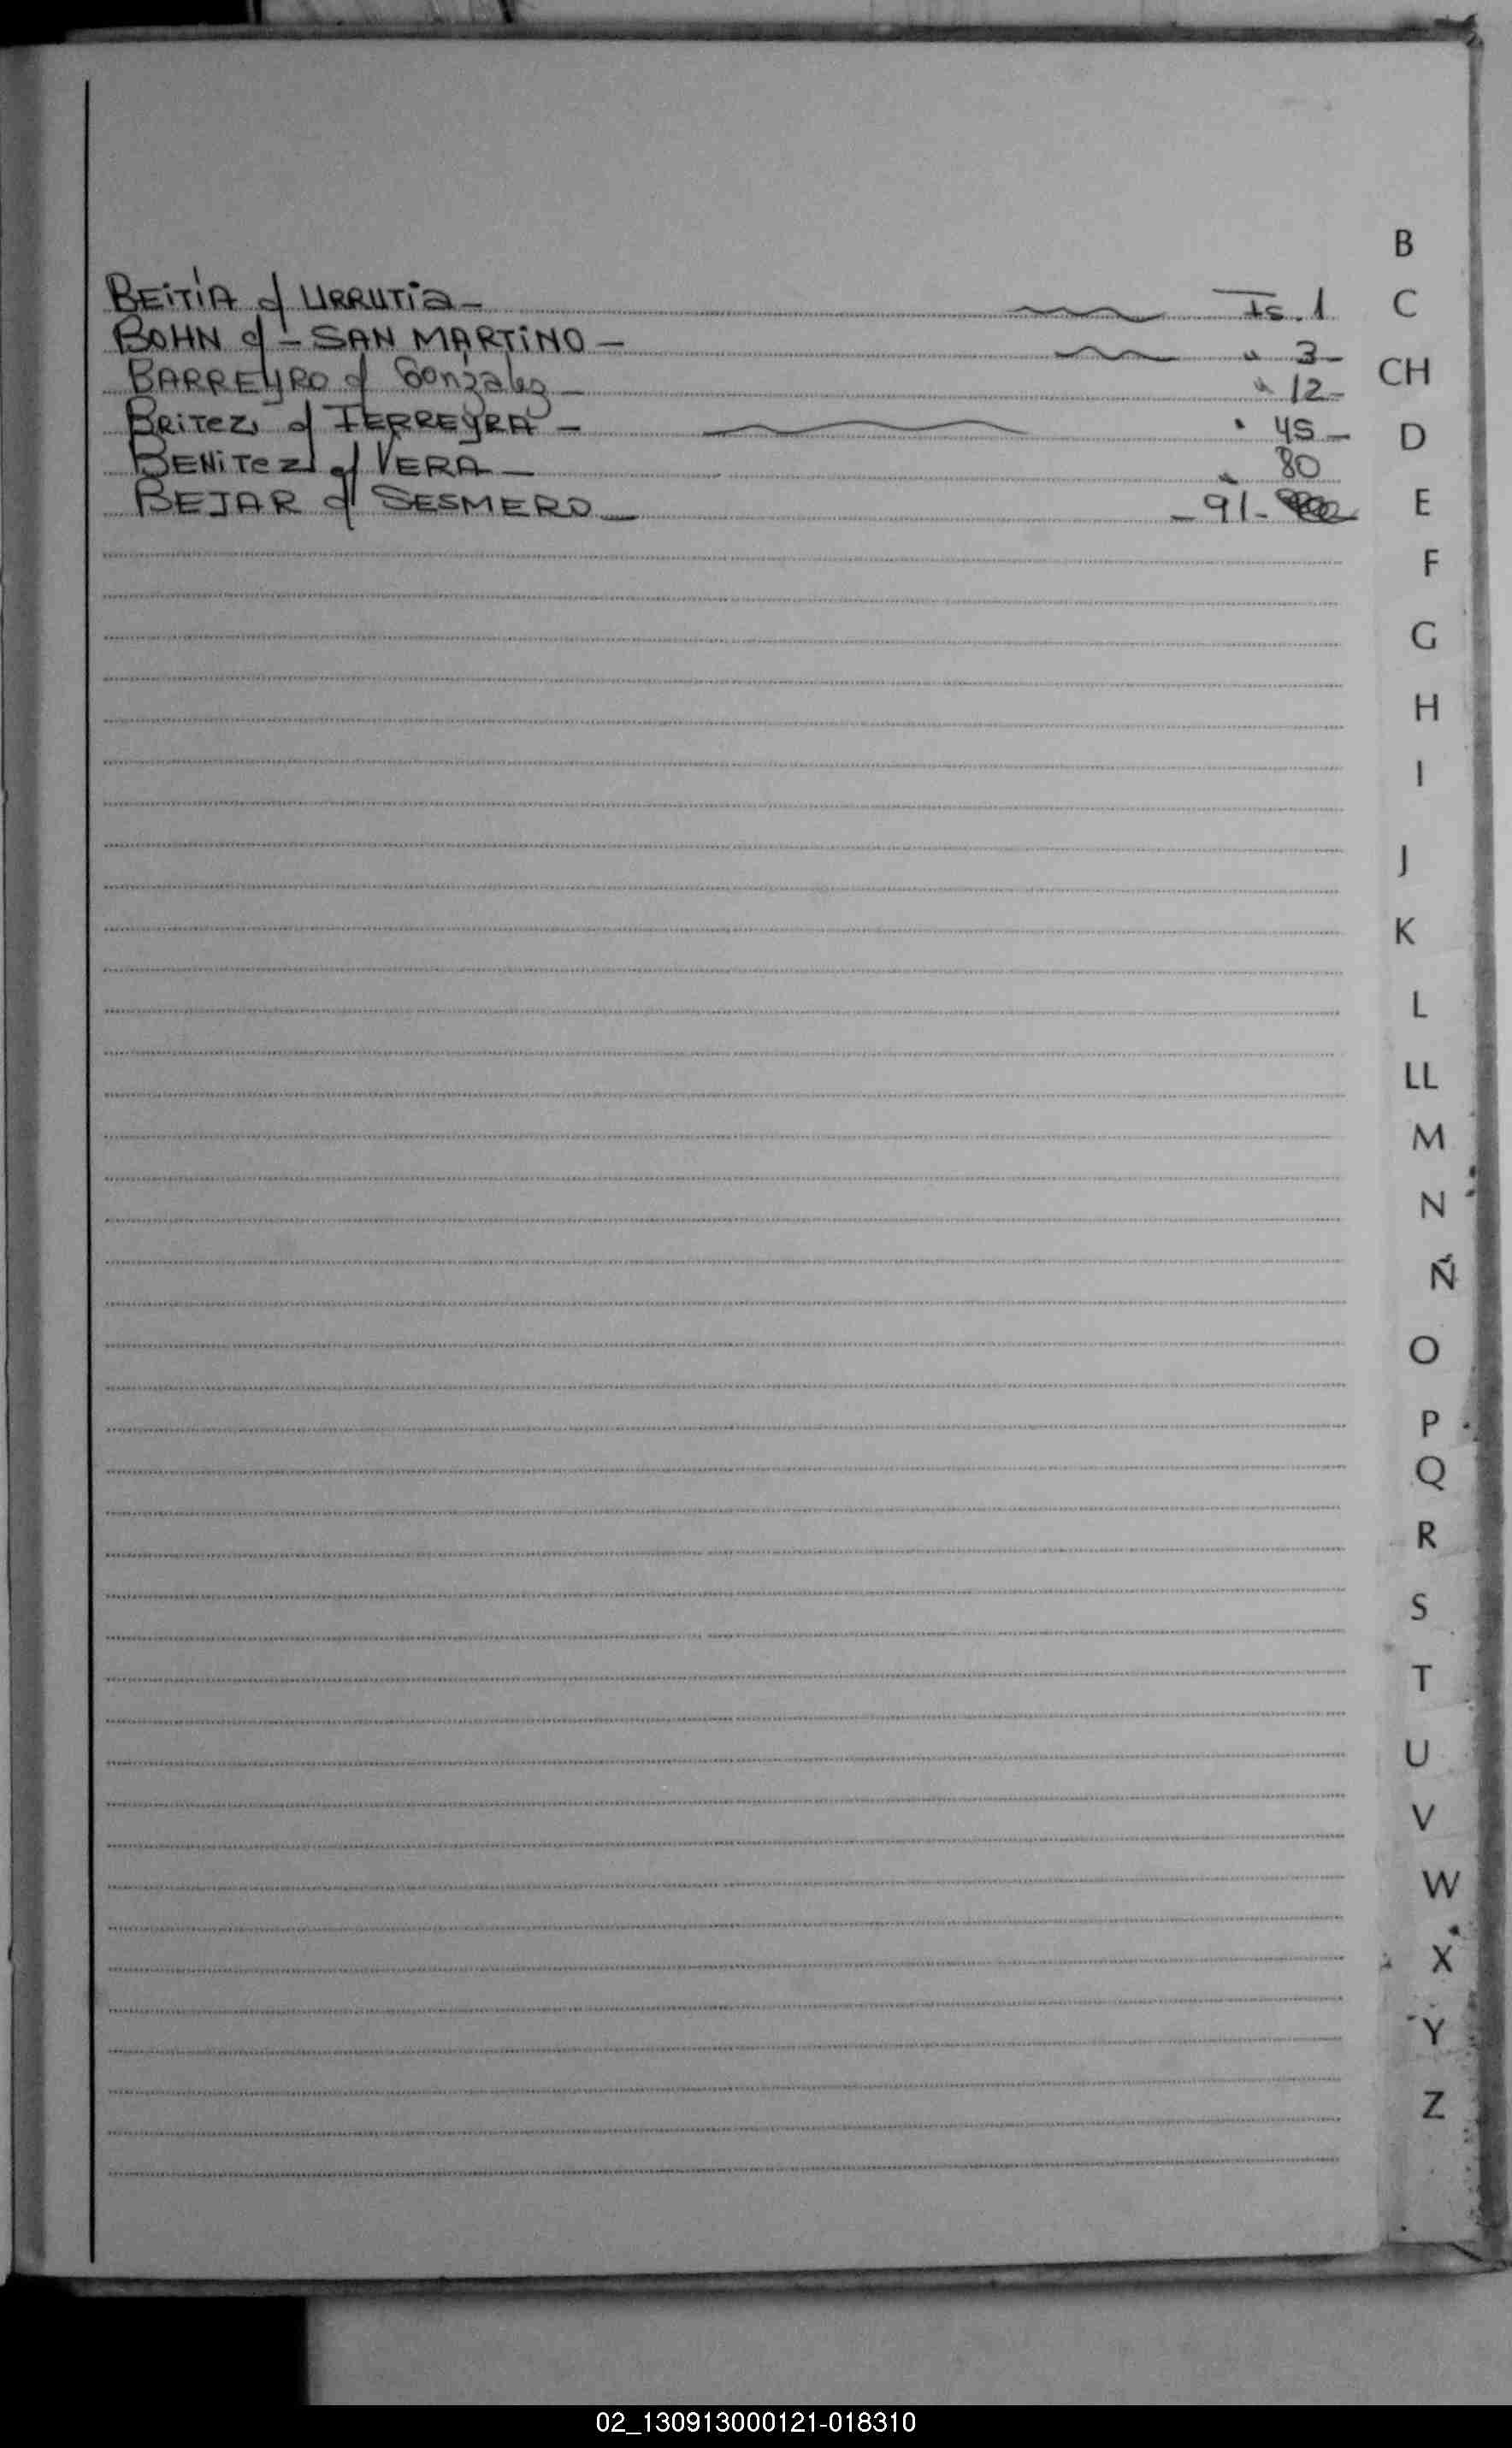 BEITÍA c/ URRUTIA - Fs. 1
BOHN c/ - SAN MARTINO - " 3 -
BARREYRO c/ Gonzalez - " 12 -
BRITEZ c/ FERREYRA - " 45 -
BENITEZ c/ VERA - " 80
BEJAR c/ SESMERO - - 91 -
B
C
CH
D
E
F
G
H
I
J
K
L
LL
M
N
Ñ
O
P
Q
R
S
T
U
V
W
X
Y
Z
02_130913000121-018310